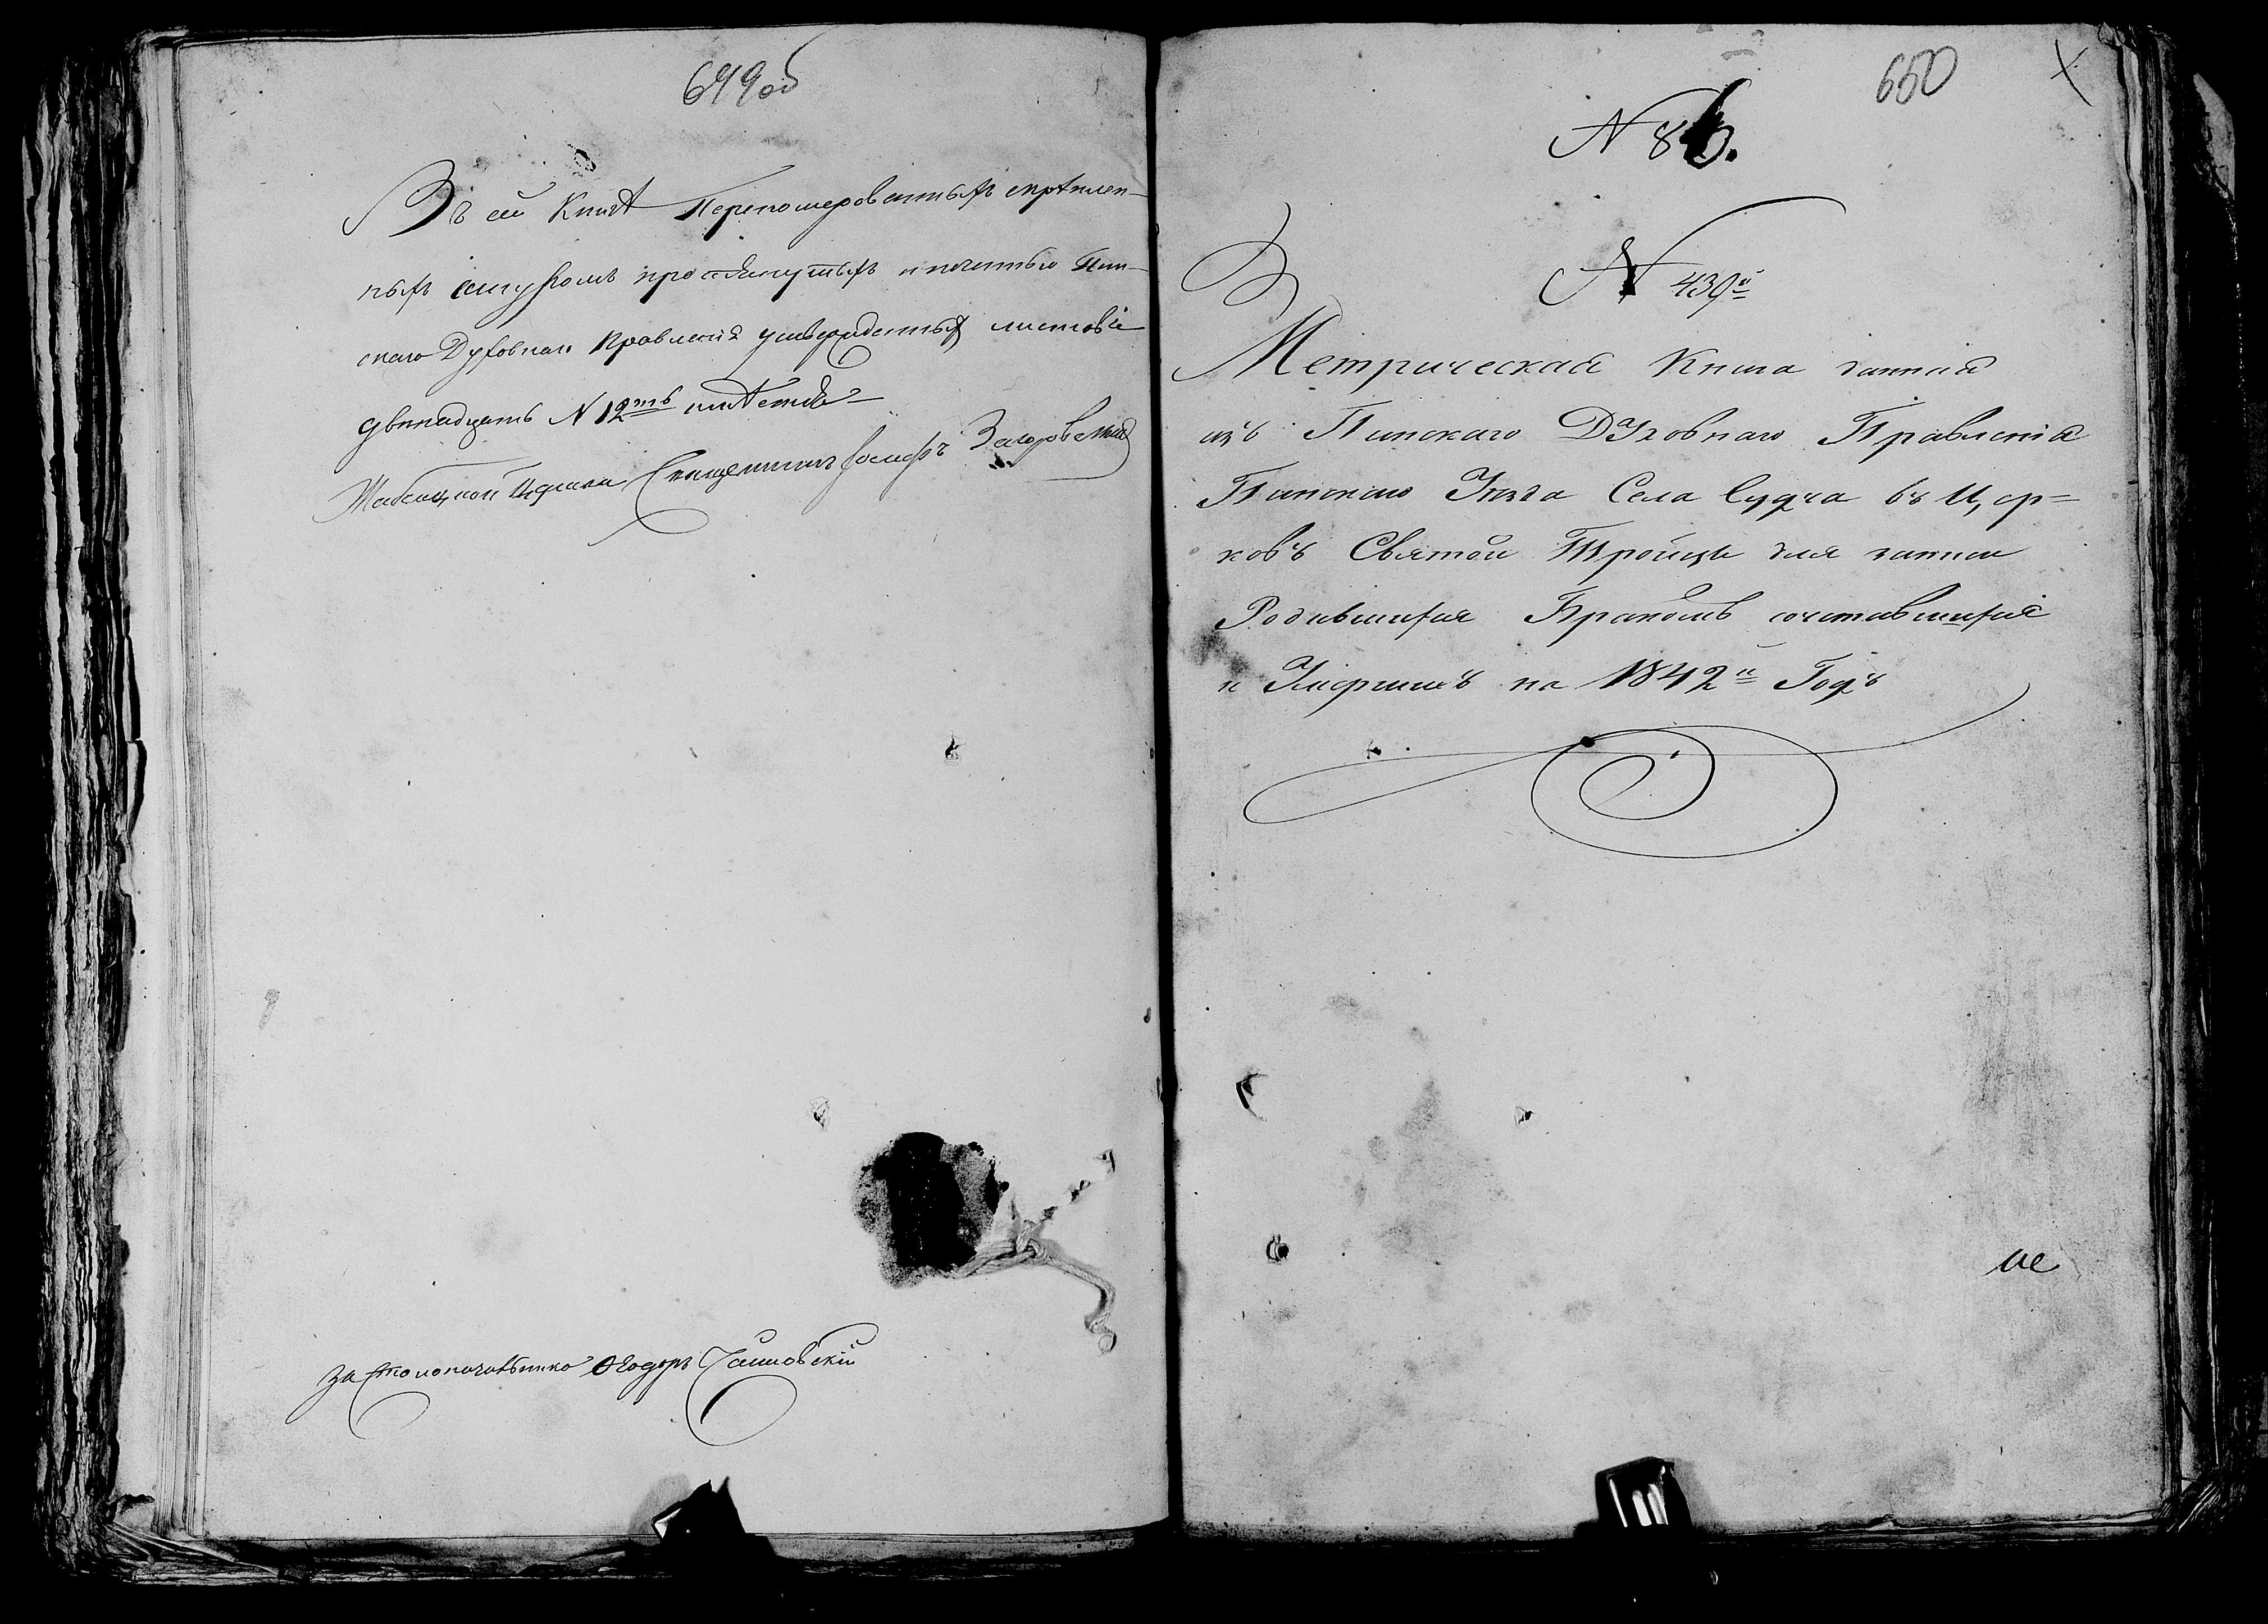 649об
Въ сей Книгѣ Переномерованныхъ скрѣплен-
ныхъ шнуромъ простянутыхъ и печатью Пин-
скаго Духовнаго Правленія утвержденныхъ листовъ
двенадцать N 12ть имѣется
Церкви Священникъ Іосифъ Загоровскій
За Столоначальника Ѳеодоръ
650
N 86.
N 439й
Метрическая Книга данная
изъ Пинскаго Духовнаго Правленія
Пинскаго Уезда Села Судча въ Цер=
ковь Святой Тройцы для записи
Родившихся Бракомъ сочетавшихся
и Умершихъ на 1842й Годъ